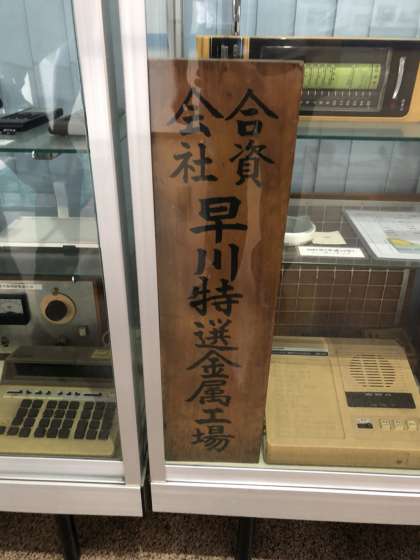 合資
会社
早川特選金属工場